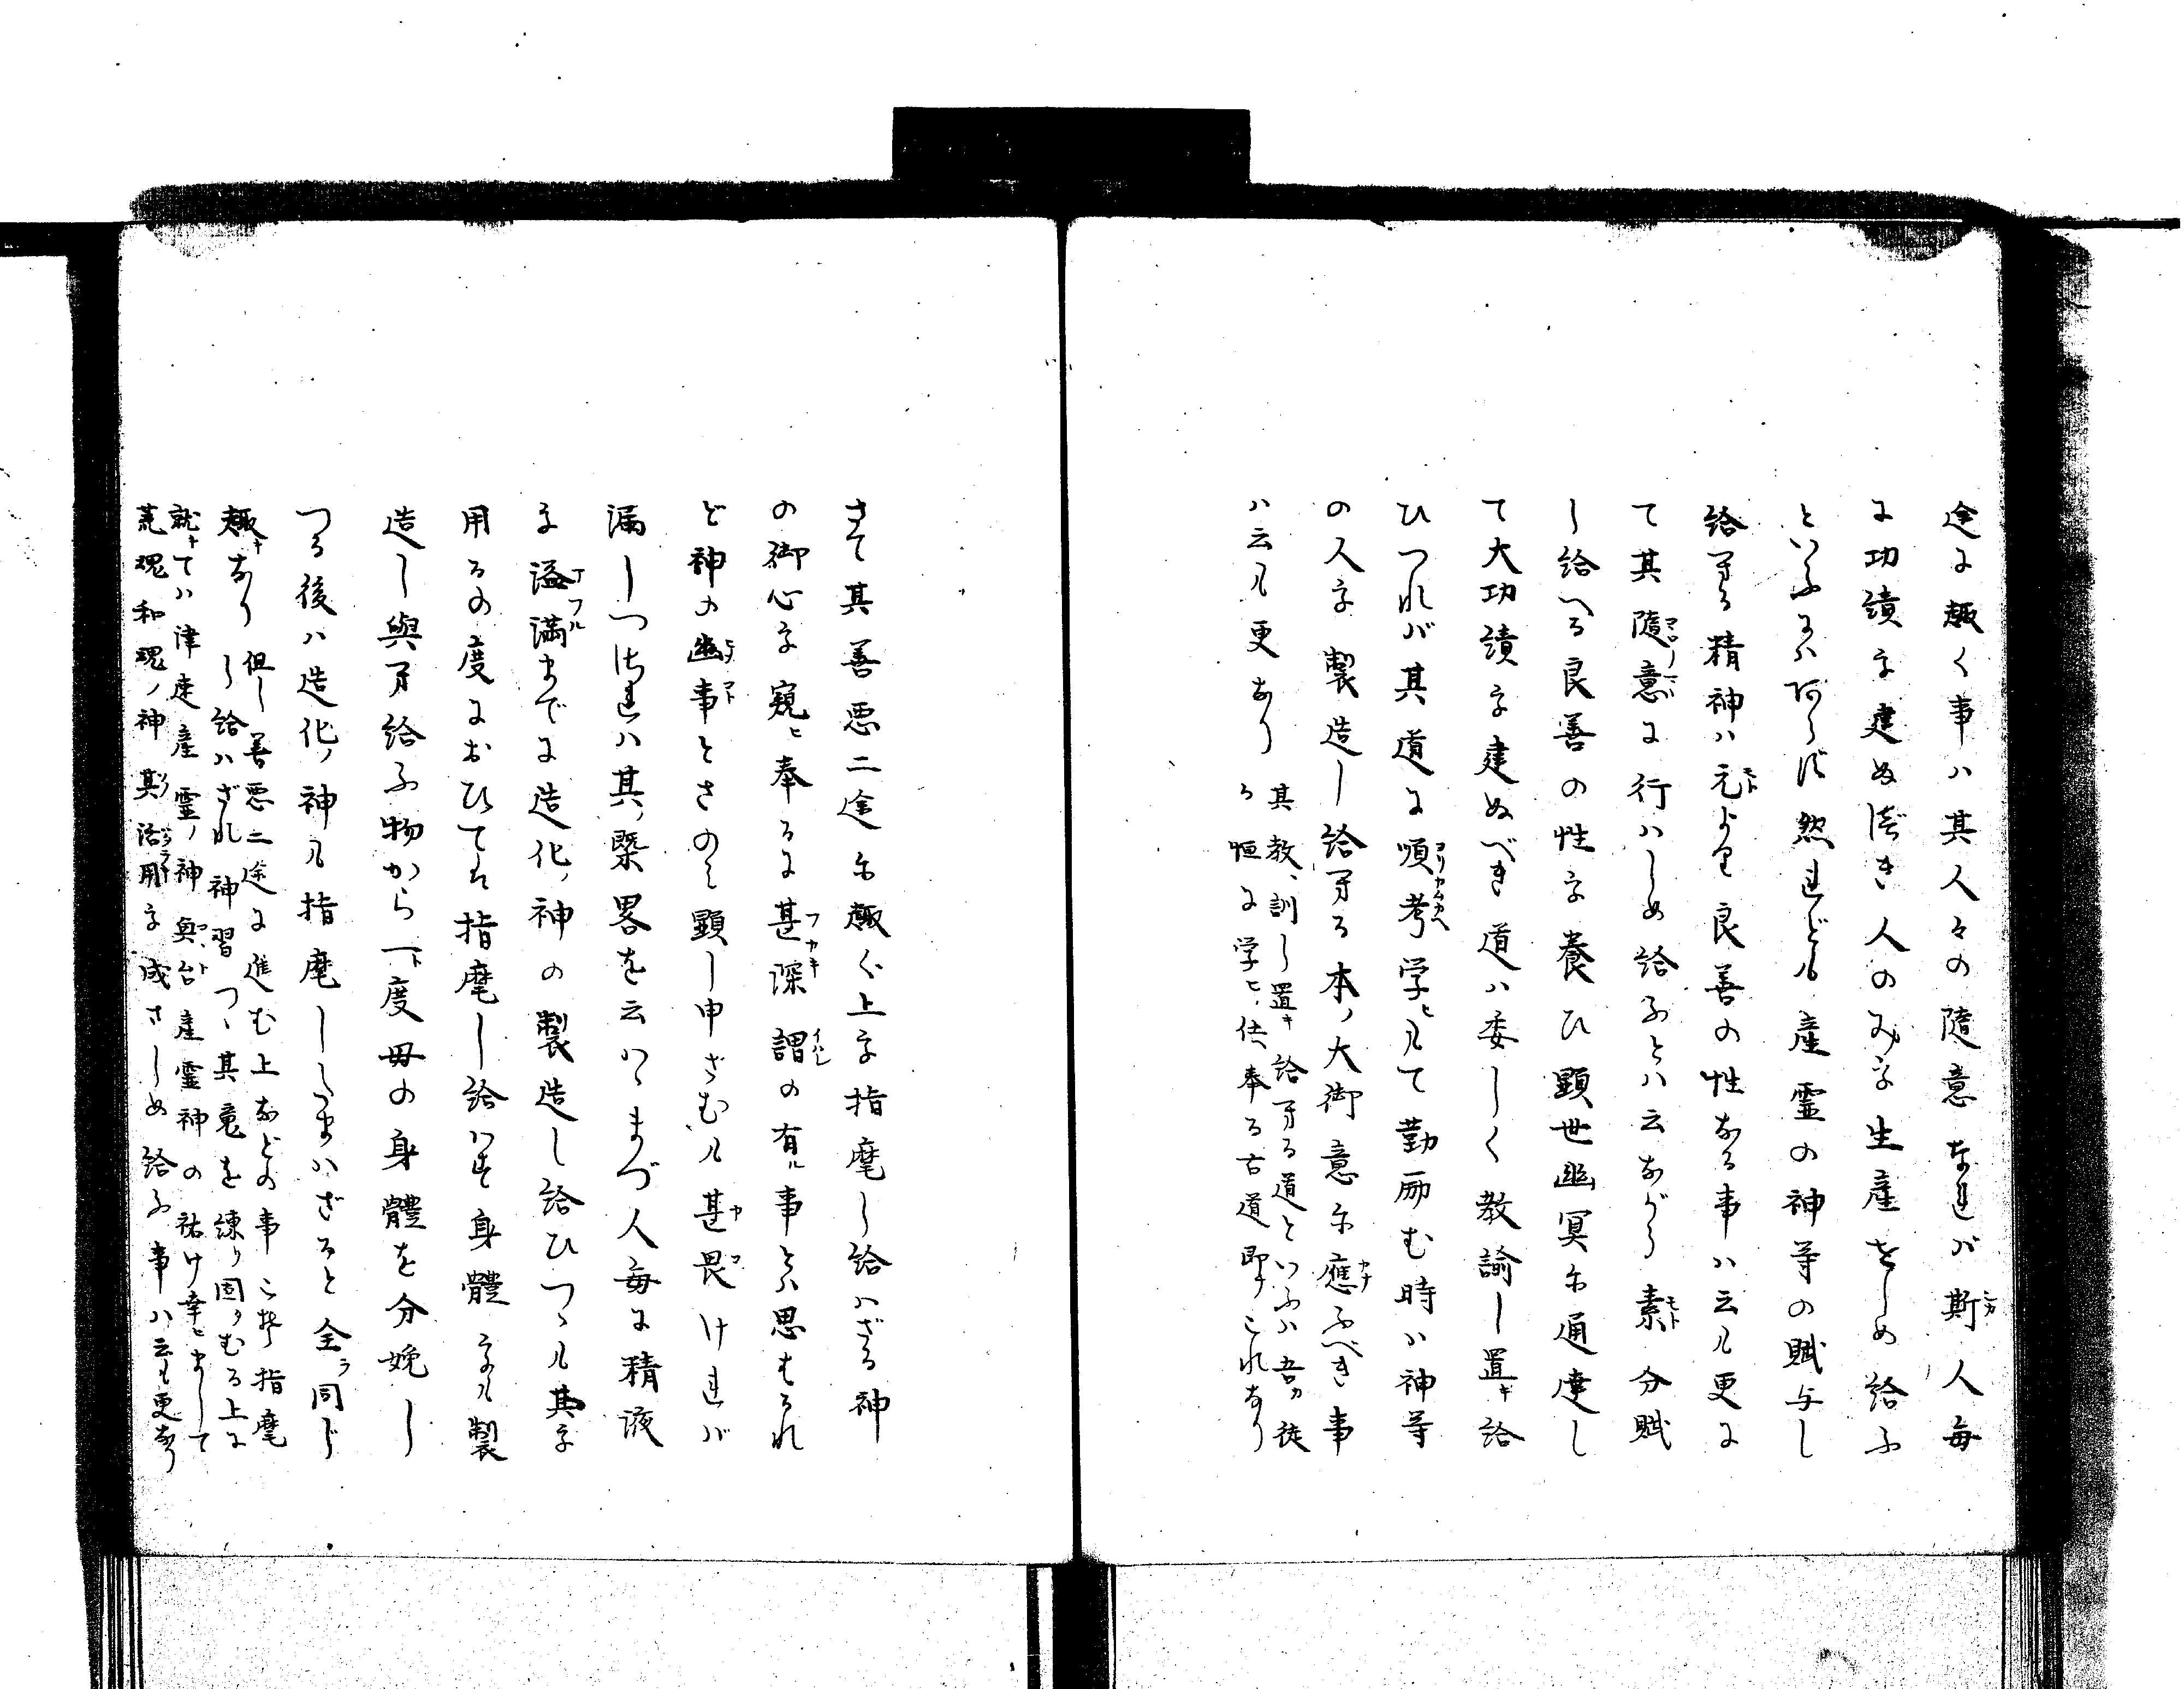 途に趣く事ハ其人々の隨意なれバ斯人毎
に功績を建ぬべき人のみを生産せしめ給ふ
といふにハ阿らず然れども産霊の神等の賦与し
給へる精神ハ元より良善の性なる事ハ云も更に
て其隨意に行ハしめ給ふとハ云ながら素分賦
し給へる良善の性を養ひ顕世幽冥に通達し
て大功績を建ぬべき道ハ委しく教諭し置キ給
ひつれバ其道に順考学ヒもて勤励む時ハ神等
の人を製造し給へる本ノ大御意に應ふべき事
ハ云も更なり
其教ヘ訓し置キ給へる道といふハ吾ガ徒
が恒に学ヒ仕奉る古道即チこれなり
さて其善悪二途に趣ぐ上を指麾し給ハざる神
の御心を窺ヒ奉るに甚深謂の有ル事とハ思はるれ
ど神の幽事とさのみ顕し申さむも甚畏けれバ
漏しつけれハ其ノ槩畧を云ハヾまづ人毎に精液
を溢満までに造化ノ神の製造し給ひつゝも其を
用るの度におひてハ指麾し給ハず身體をも製
造し與へ給ふ物から一ト度母の身體を分娩し
つる後ハ造化ノ神も指麾したまハざると全ラ同じ
趣キなり
但し善悪二途に進む上などの事こそ指麾
し給ハざれ神習つゝ其竟を練り固ダむる上に
就キてハ津速産霊ノ神興台産霊神の祐け幸ヒまして
荒魂和魂ノ神其ノ活用を成さしめ給ふ事ハ云も更なり